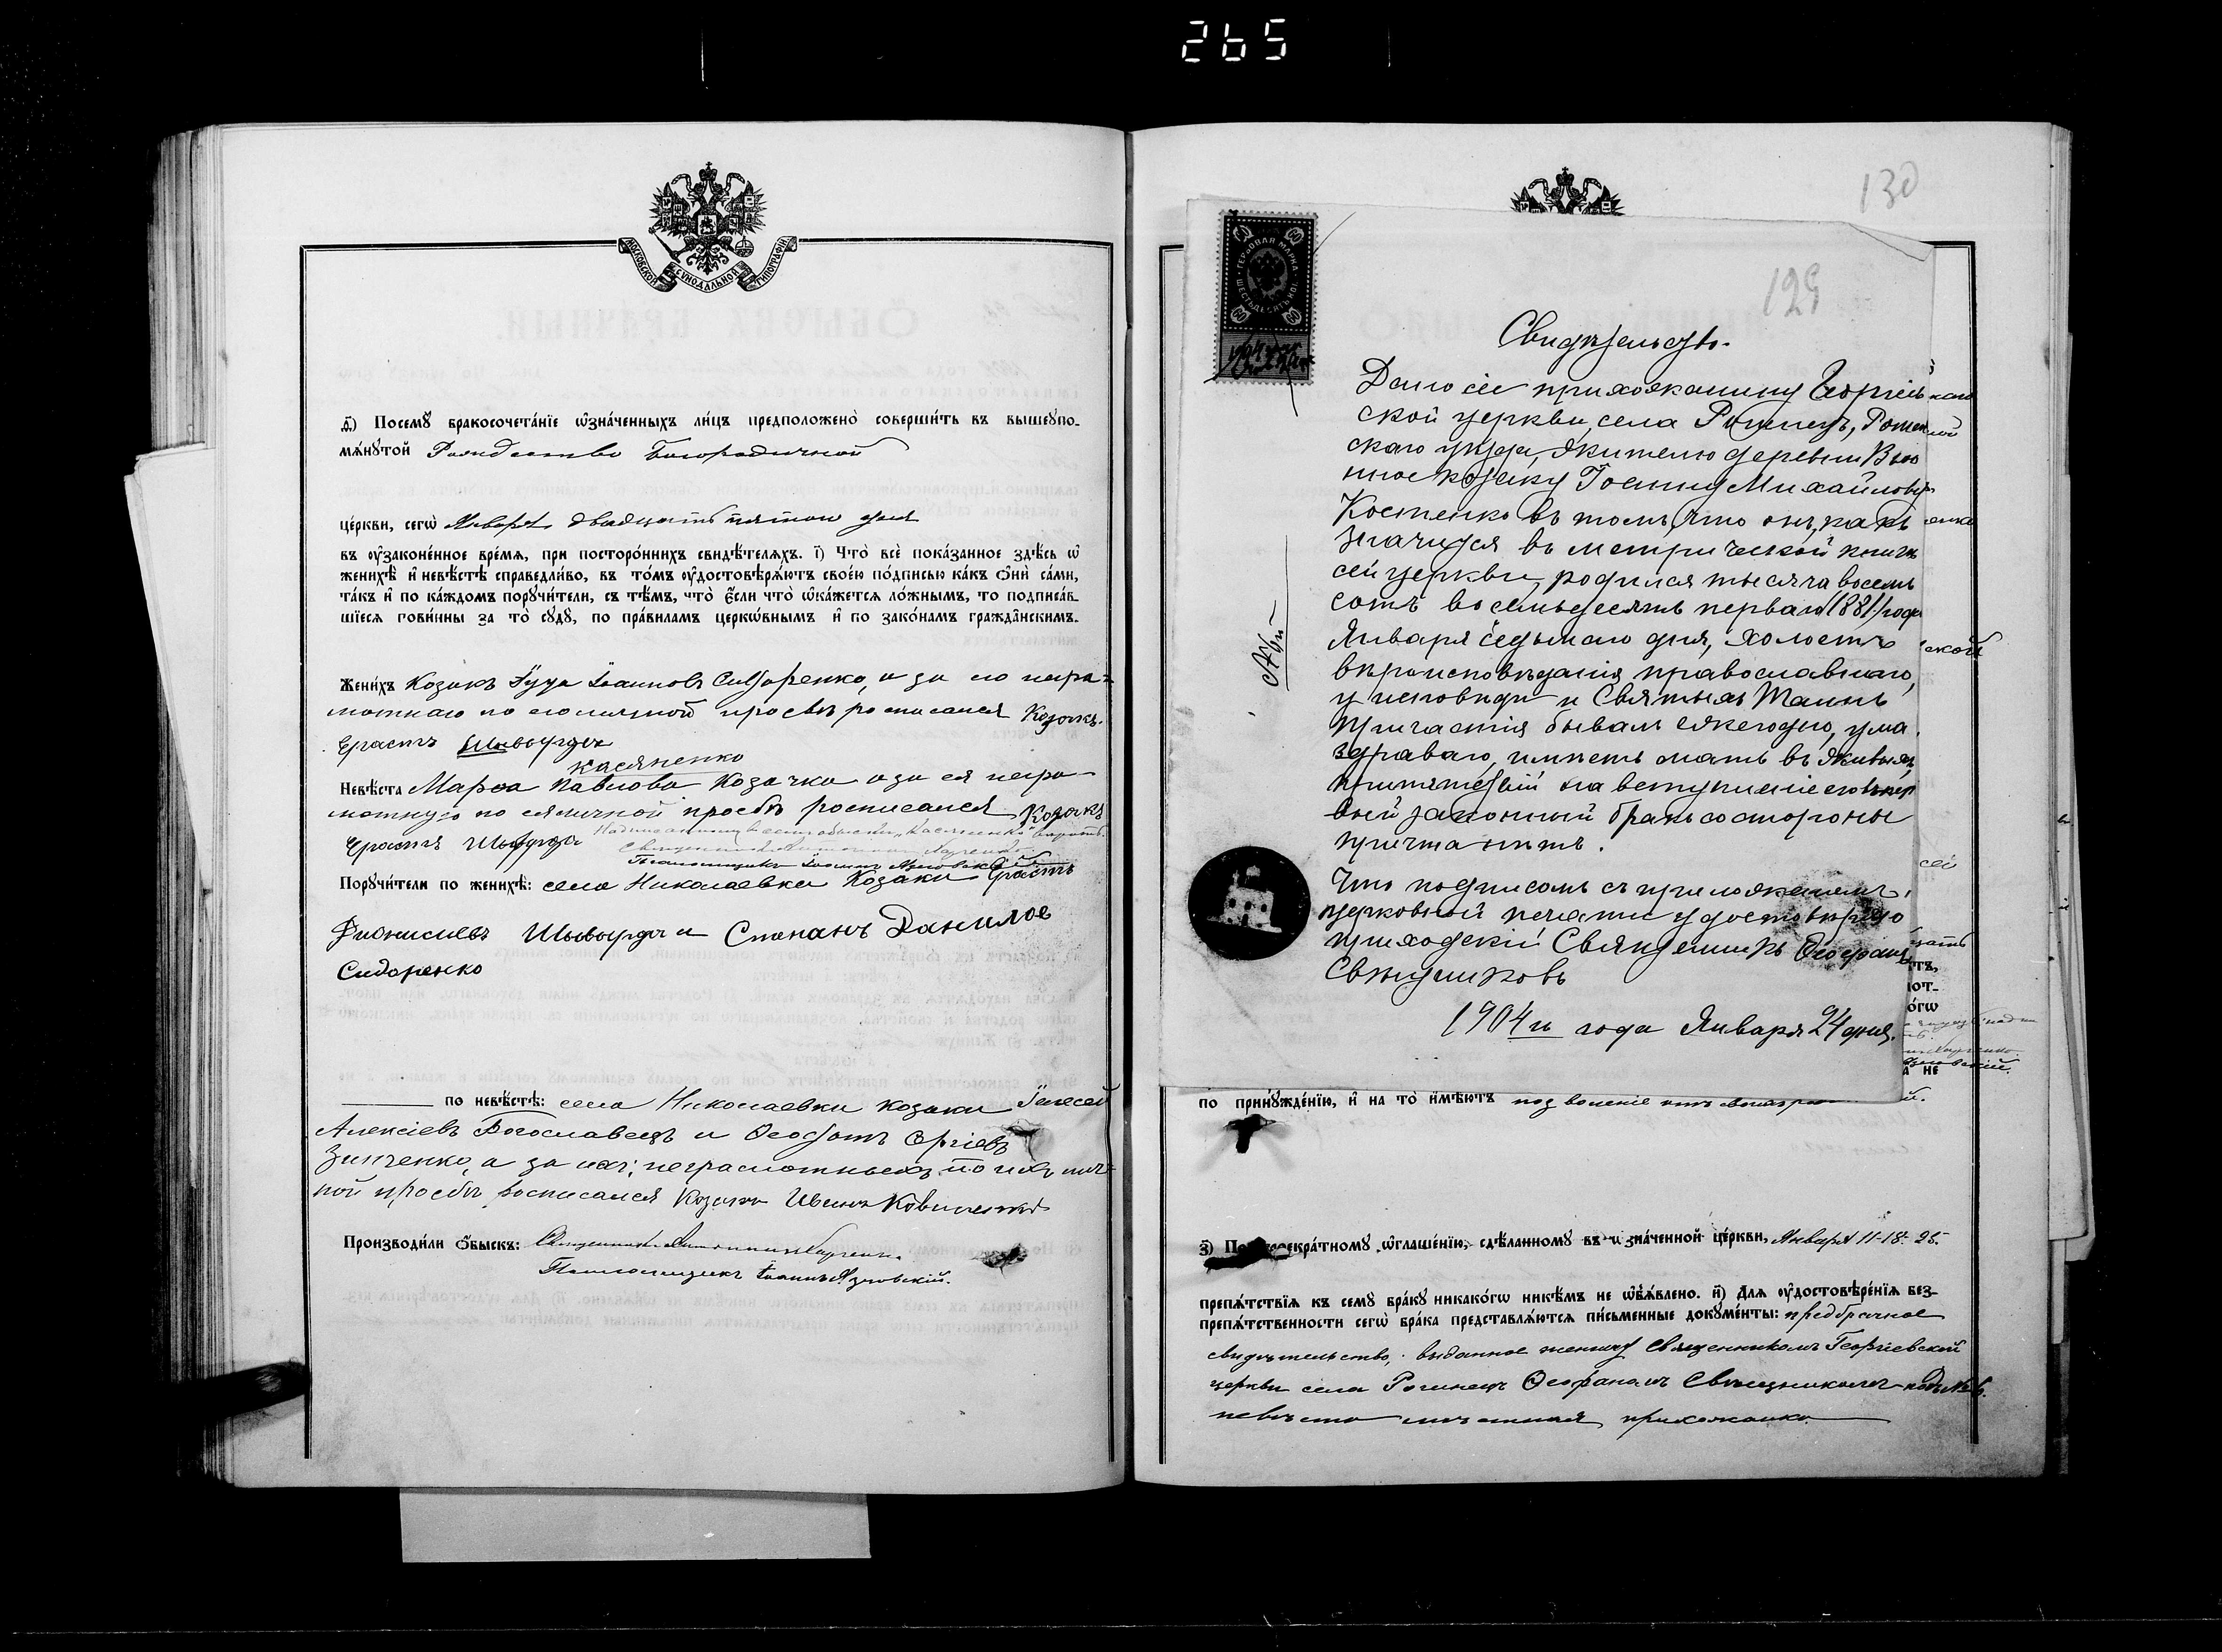 265
МОСКОВСКОЙ СѴНОДАЛЬНОЙ ТИПОГРАФІИ
ѳ҃) Посемꙋ̀ бракосочета́нїе ѡ҆зна́ченныхъ ли́цъ предположено̀ соверши́ть въ вышеꙋпо-
мѧ́нꙋтой Рождество Богородичной
це́ркви, сегѡ̀ Января двадцать пятого дня
въ ᲂу҆законе́нное вре́мѧ, при посторо́ннихъ свидѣ́телѧхъ. і҃) Что̀ всѐ пока́занное здѣ́сь ѡ҆
женихѣ̀ и҆ невѣ́стѣ справедли́во, въ то́мъ ᲂу҆достовѣрѧ́ютъ свое́ю по́дписью ка́къ ѻ҆нѝ са́ми,
та́къ и҆ по ка́ждомъ порꙋчи́тели, съ тѣ́мъ, что̀ є҆́сли что̀ ѡ҆ка́жетсѧ ло́жнымъ, то подписа́в-
шїесѧ пови́нны за то̀ сꙋдꙋ̀, по пра́виламъ церко́внымъ и҆ по зако́намъ гражда́нскимъ.
Жени́хъ Козакъ Іоанновъ Сидоренко, а за его негра-
мотнаго по его личной просьбѣ росписался Козакъ
Ерастъ Шывоурда
Касяненко
Невѣ́ста Марѳа Павлова Козачка а за ея негра-
мотную по ея личной просьбѣ росписался Козакъ
Ерастъ Шывоурда
Псаломщикъ Іоаннъ
Порꙋчи́тели по женихѣ̀: села Николаевки Козаки Ерастъ
Фионисиевъ Шывоурда и Степанъ Данилов
Сидоренко
по невѣ́стѣ: села Николаевки козаки
Алексіевъ Богославецъ и Ѳеодотъ
Зинченко, а за ихъ неграмотныхъ по ихъ лич-
ной просьбѣ росписался Козакъ Иванъ
Производи́ли ѻ҆́быскъ: Священникъ
Псаломщикъ Іоаннъ
130
129
ГЕРБОВАЯ МАРКА
ШЕСТЬДЕСЯТЪ КОП.
60
Свидѣтельство.
Дано сіе прихожанину Георгіев
ской церкви, села Рогинецъ, Ромен
скаго уѣзда, жителю деревни Вью
нное козаку Іоанну Михайлову
Костенко въ томъ, что онъ, какъ
значится въ метрической книгѣ
сей церкви, родился тысяча восемь
сотъ восемьдесятъ перваго /1881/ года
Января седьмаго дня, холостъ
вѣроисповѣданія православнаго,
у исповѣди и Святыхъ Таинъ
причастія бывалъ ежегодно, ума
здраваго, имѣетъ мать въ живыхъ,
препятствій на вступленіе его въ пер
вый законный бракъ со стороны
причта нѣтъ.
Что подписомъ съ приложеніемъ
церковной печати удостовѣряю
приходскій Священникъ Ѳеофанъ
Свѣщниковъ
1904 го года Января 24 дня.
№ 6й
по принꙋжде́нїю, и҆ на то̀ и҆мѣ́ютъ позволеніе
з҃) По троекра́тномꙋ ѡ҆глаше́нїю, сдѣ́ланномꙋ въ ѡ҆зна́ченной це́ркви, Января 11-18-25.
препѧ́тствїѧ къ семꙋ̀ бра́кꙋ никако́гѡ никѣ́мъ не ѡ҆бъѧ́влено. и҃) Длѧ ᲂу҆достовѣре́нїѧ без-
препѧ́тственности сегѡ̀ бра́ка представлѧ́ютсѧ пи́сьменные докꙋме́нты: предбрачное
свидѣтельство, выданное жениху Священникомъ Георгіевской
церкви села Рогинецъ Ѳеофаномъ Свѣщниковымъ подъ № 6.
невѣста мѣстная прихожанка.